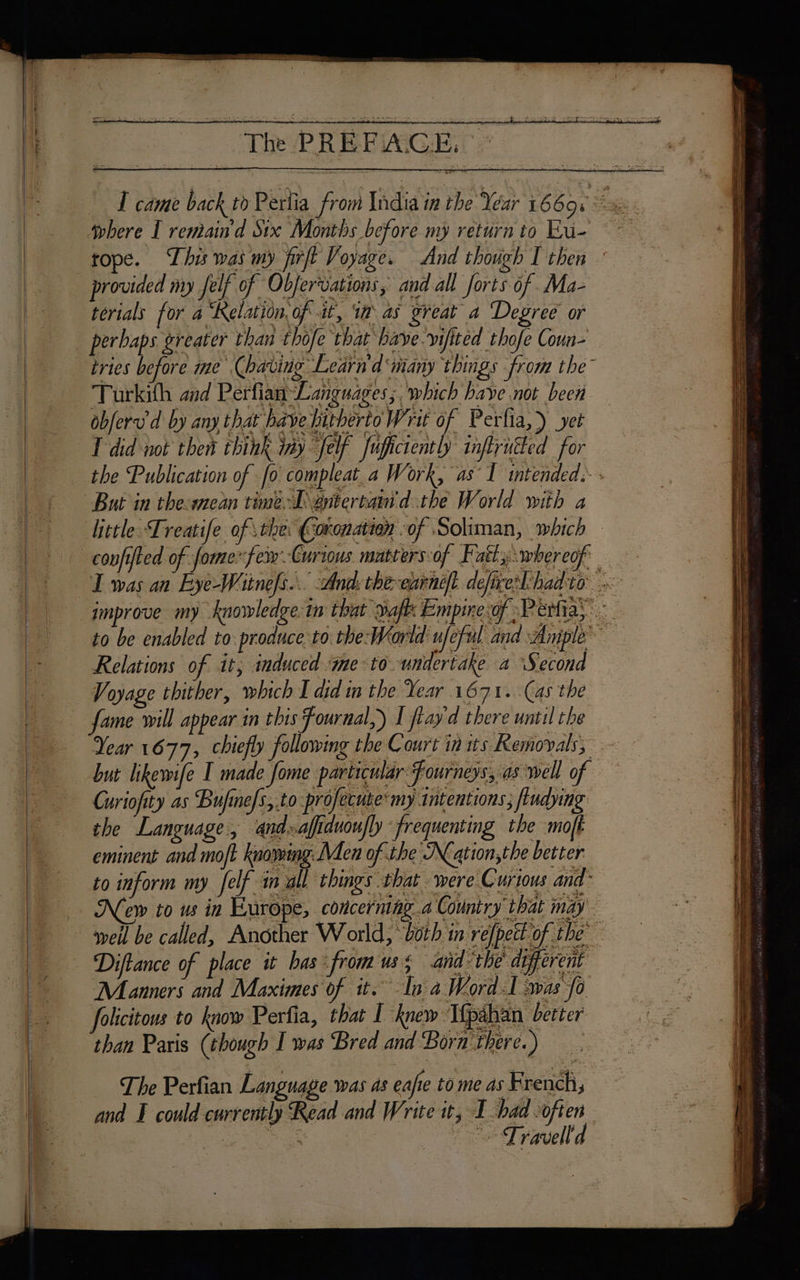 The PREFACE.
I came back to Perſia from India in the Year 1669.
where I remain'd Six Months before my return to Eu-
rope. This was my firſt Voyage. And though I then
provided my ſelf of Obſervations, and all ſorts of Ma-
terials for a Relation of it, in as great a Degree or
perhaps greater than thoſe that have viſited thoſe Coun-
tries before me (having Learn'd many things from the
Turkiſh and Perſian Languages, which have not been
obſerv'd by any that have hitherto Writ of Perſia,) yet
I did not then think my ſelf ſufficiently inſtructed for
the Publication of ſo compleat a Work, as I intended.
But in the mean time I entertain'd the World with a
little Treatiſe of the Coronation of Soliman, which
conſiſted of ſome few Curious matters of Fact, whereof
I was an Eye-Witneſs. And the earneſt deſire I had to
improve my knowledge in that vaſt Empire of Perſia,
to be enabled to produce to the World uſeful and Ample
Relations of it, induced me to undertake a Second
Voyage thither, which I did in the Year 1671. (as the
ſame will appear in this Journal,) I ſtay'd there until the
Year 1677, chiefly following the Court in its Removals,
but likewiſe I made ſome particular Journeys, as well of
Curioſity as Buſineſs, to proſecute my intentions, ſtudying
the Language, and aſſiduouſly frequenting the moſt
eminent and moſt knowing Men of the Nation, the better
to inform my ſelf in all things that were Curious and
New to us in Europe, concerning a Country that may
well be called, Another World, both in reſpect of the
Diſtance of place it has from us; and the different
Manners and Maximes of it. In a Word I was ſo
ſolicitous to know Perſia, that I knew Iſpahan better
than Paris (though I was Bred and Born there.)
The Perſian Language was as eaſie to me as French,
and I could currently Read and Write it, I had often
Travell'd